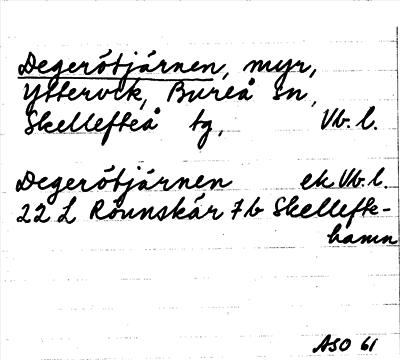 Degerötjärnen, myr,
Yttervik, Bureå sn,
Skellefteå tg, Vb. l.
Degerötjärnen ek Vb. l.
22 L Rönnskär 7b Skellefte-
hamn
ASO 61